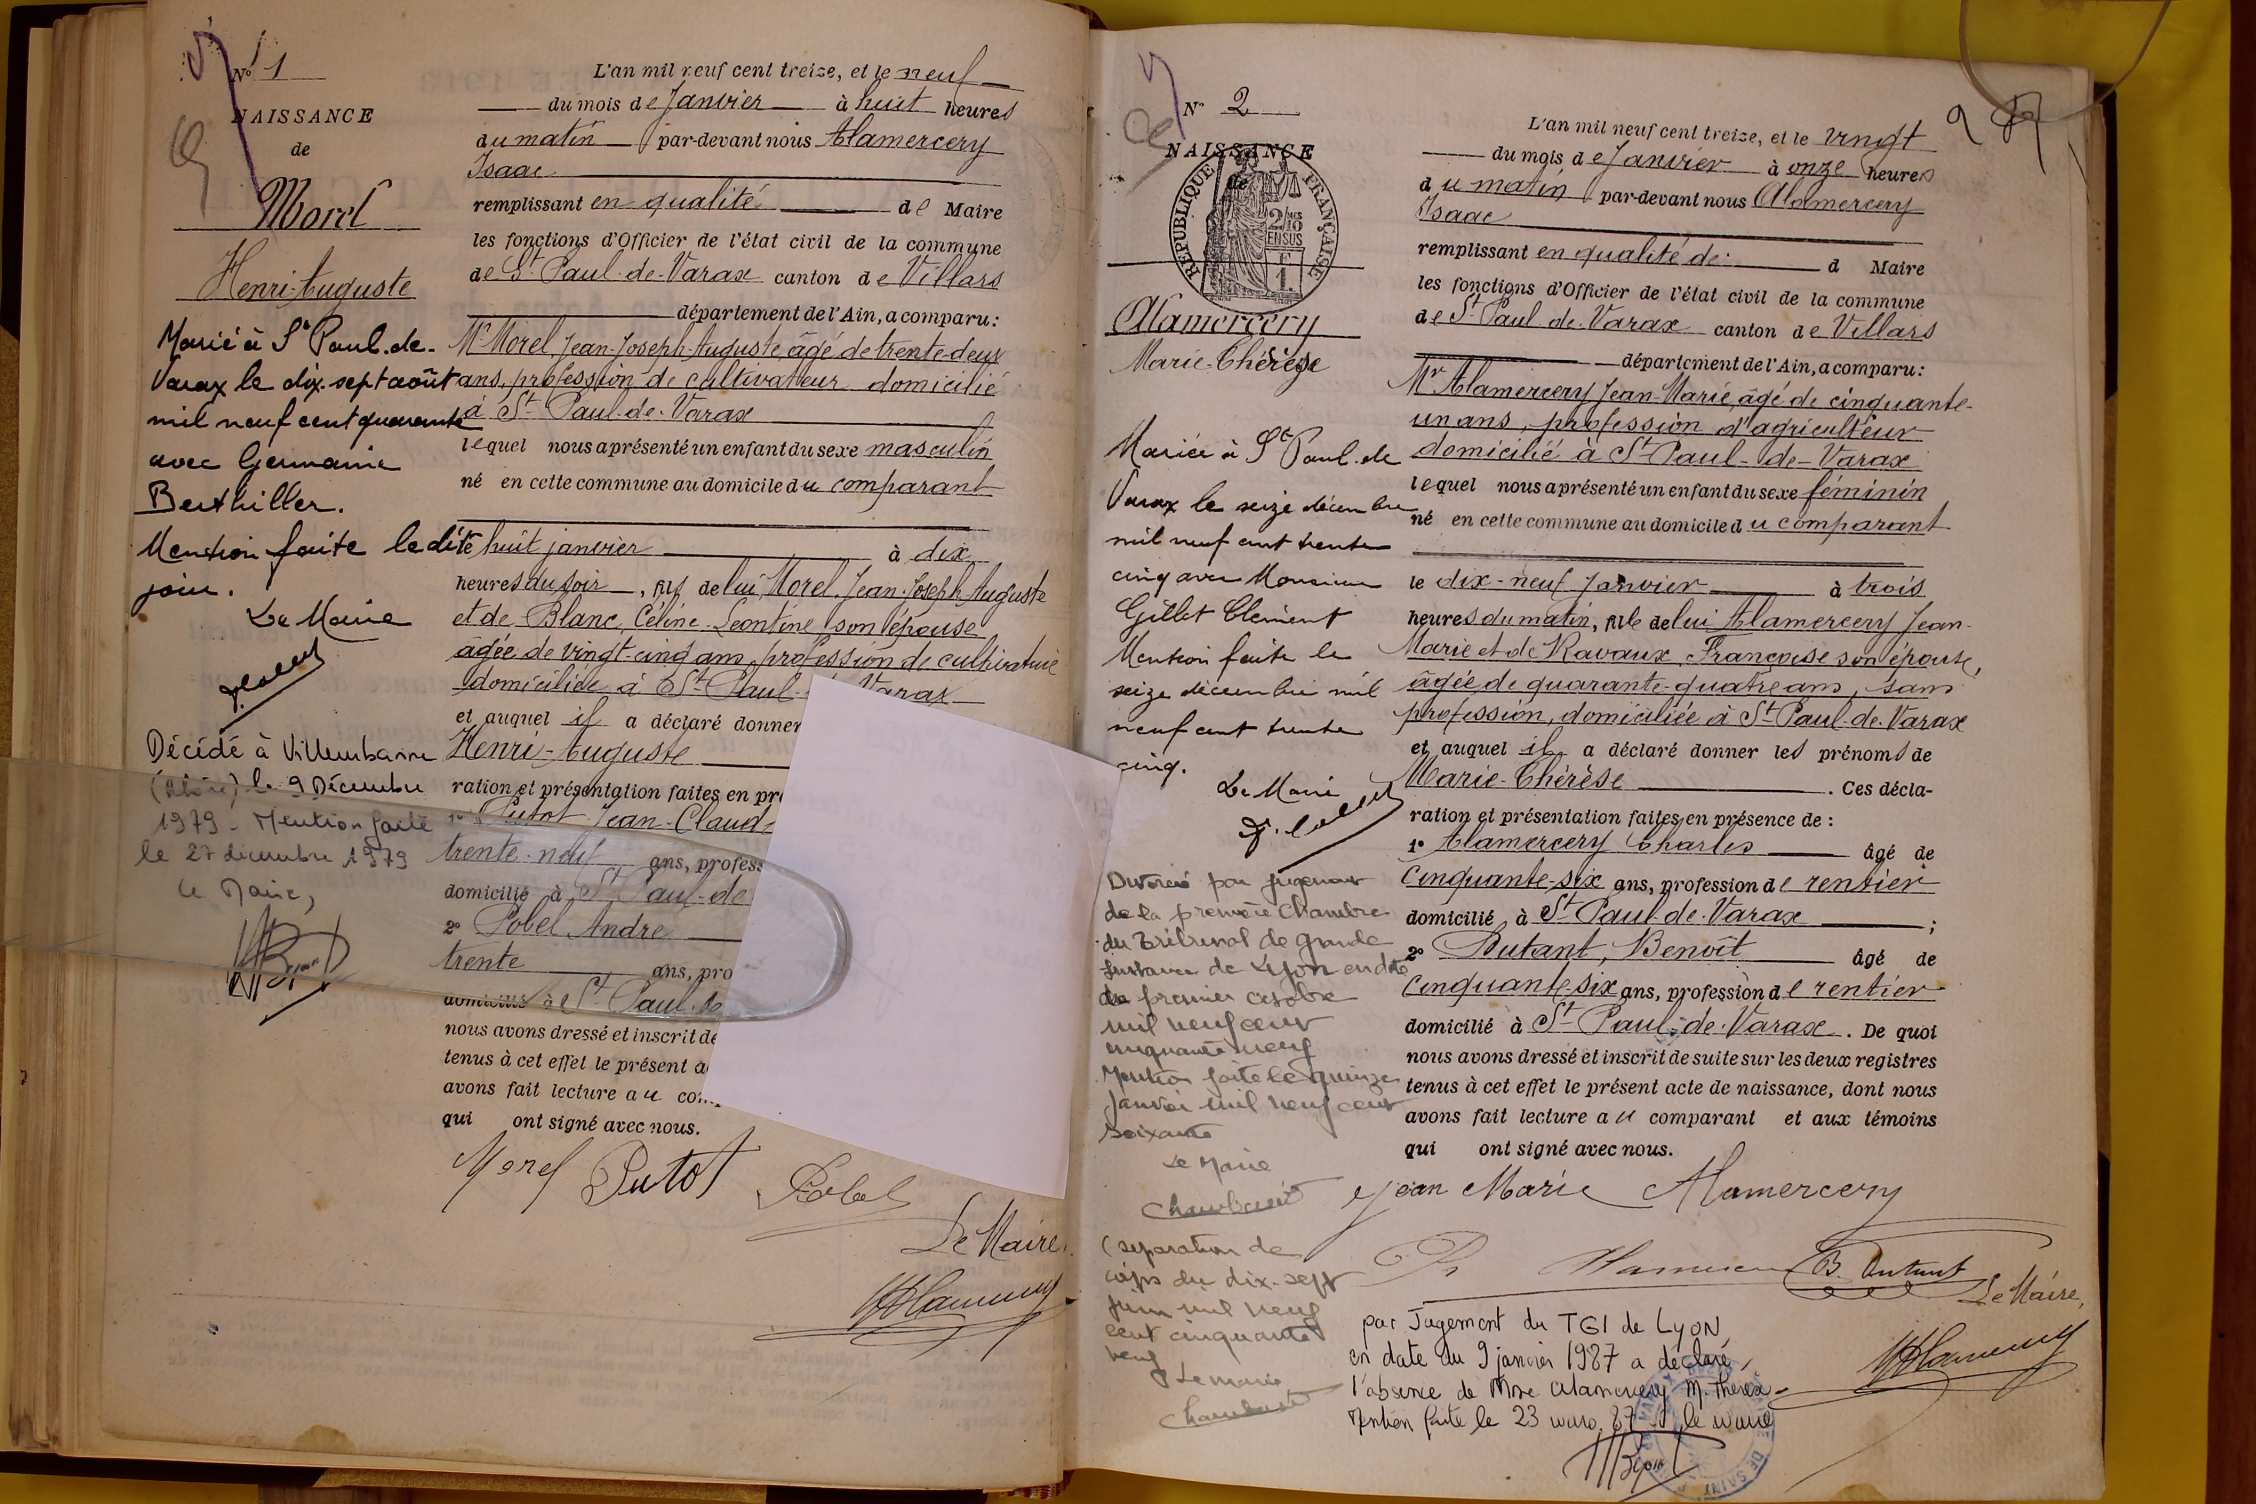 N° 1
NAISSANCE
de
Morel
Henri-Auguste
Marié à St Paul-de-
Varax le dix-sept août
mil neuf cent quarante
avec Germaine
Berthillier.
Mention faite le dit
jour.
Le Maire
Décédé à Villeurbanne
(Rhône) le 9 Décembre
1979 - Mention faite
le 27 décembre 1979
Le Maire,
L'an mil neuf cent treize, et le neuf
du mois de Janvier à huit heures
du matin par-devant nous Alamercery
Isaac
remplissant en qualité de Maire
les fonctions d'Officier de l'état civil de la commune
de St Paul-de-Varax canton de Villars
département de l'Ain, a comparu:
Mr Morel, Jean-Joseph-Auguste, âgé de trente-deux
ans, profession de cultivateur domicilié
à St Paul-de-Varax
lequel nous a présenté un enfant du sexe masculin
né en cette commune au domicile du comparant
le huit janvier à dix
heures du soir, fils de lui Morel, Jean-Joseph Auguste
et de Blanc, Céline-Léontine son épouse
âgée de vingt-cinq ans, profession de cultivatrice
domiciliée à St Paul- Varax
et auquel il a déclaré donner
Henri-Auguste
ration et présentation faites en pr
1° Putot Jean-Claud
trente-neuf ans, profess
domicilié à St Paul-de
2° Pobel André
trente ans, pro
domicilié à St Paul-d
nous avons dressé et inscrit de
tenus à cet effet le présent a
avons fait lecture au com
qui ont signé avec nous.
Morel Putot Pobel
Le Maire,
N° 2
NAISSANCE
de
REPUBLIQUE FRANÇAISE
2/10 EN SUS
Alamercery
Marie-Thérèse
Mariée à St Paul-de
Varax le seize décembre
mil neuf cent trente
cinq avec Monsieur
Gillet Clément
Mention faite le
seize décembre mil
neuf cent trente
cinq.
Le Maire
Divorcé par jugement
de la première Chambre
du Tribunal de grande
Instance de Lyon en date
du premier octobre
mil neuf cent
cinquante neuf
Mention faite le quinze
janvier mil neuf cent
soixante
Le Maire
(separation de
corps du dix-sept
juin mil neuf
cent cinquante
neuf
Le maire
2
L'an mil neuf cent treize, et le vingt
du mois de Janvier à onze heures
du matin par-devant nous Alamercery
Isaac
remplissant en qualité de d Maire
les fonctions d'Officier de l'état civil de la commune
de St Paul-de-Varax canton de Villars
département de l'Ain, a comparu:
Mr Alamercery Jean-Marie, âgé de cinquante-
un ans, profession d'agriculteur
domicilié à St Paul-de-Varax
lequel nous a présenté un enfant du sexe féminin
né en cette commune au domicile du comparant
le dix-neuf Janvier à trois
heures du matin, fille de lui Alamercery Jean-
Marie et de Ravaux, Françoise son épouse,
âgée de quarante-quatre ans, sans
profession, domiciliée à St Paul-de-Varax
et auquel il a déclaré donner les prénoms de
Marie-Thérèse . Ces décla-
ration et présentation faites en présence de :
1° Alamercery Charles âgé de
cinquante-six ans, profession de rentier
domicilié à St Paul-de-Varax ;
2° Dutant, Benoît âgé de
cinquante-six ans, profession de rentier
domicilié à St Paul-de-Varax . De quoi
nous avons dressé et inscrit de suite sur les deux registres
tenus à cet effet le présent acte de naissance, dont nous
avons fait lecture au comparant et aux témoins
qui ont signé avec nous.
Jean Marie Alamercery
B. Dutant
Le Maire,
par Jugement du TGI de LYON
en date du 9 janvier 1987 a déclaré
l'absence de Mme Alamercery M. Thérèse -
Mention faite le 23 mars 87 le maire